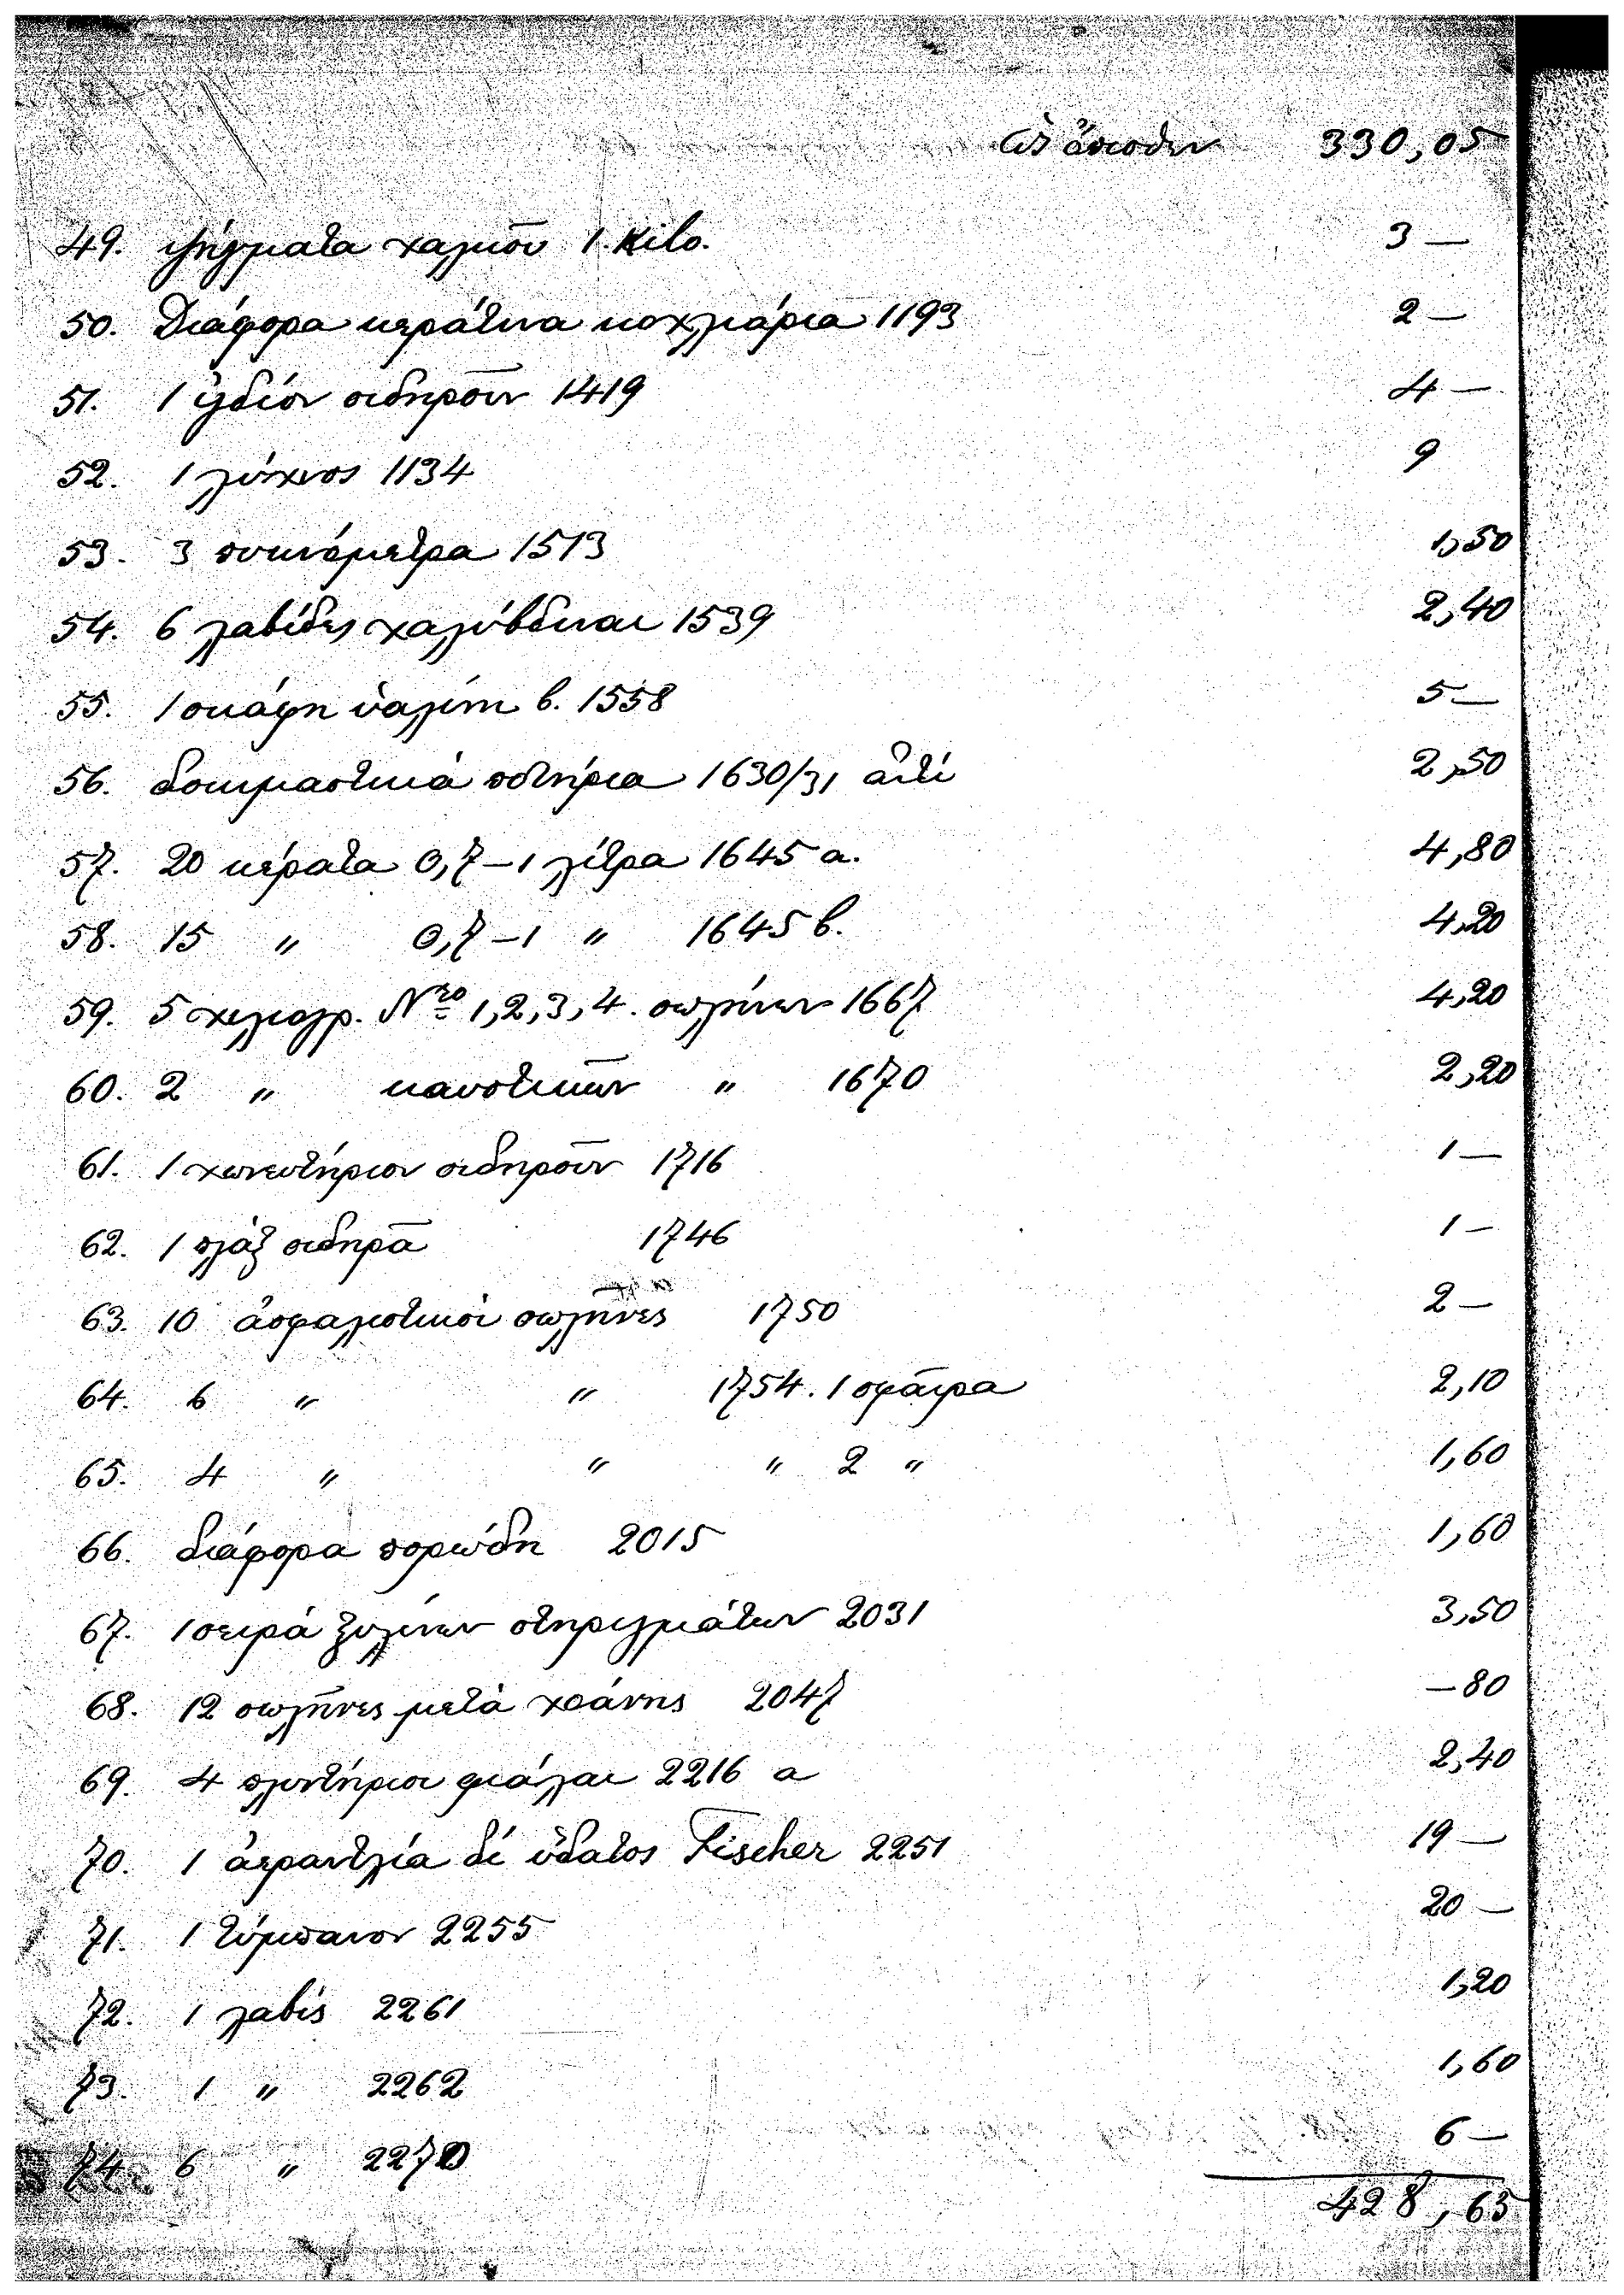 Ὡς ὄπισθεν 330,05
49. ψήγματα χαλκοῦ 1 Kilo. 3 —
50. Διάφορα κεράτινα κοχλιάρια 1193 2 —
51. 1 ἰγδίον σιδηροῦν 1419 4 —
52. 1 λύχνος 1134 9
53. 3 πυκνόμετρα 1513 1,50
54. 6 λαβίδες χαλύβδιναι 1539 2,40
55. 1 σκάφη ὑαλίνη b. 1558 5 —
56. δοκιμαστικά ποτήρια 1630/31 ἀντί 2,50
57. 20 κέρατα 0,7 – 1 λίτρα 1645 a. 4,80
58. 15 " 0,7 – 1 " 1645 b. 4,20
59. 5 χιλιογρ. Nro 1,2,3,4. σωλήνων 1667 4,20
60. 2 " καυστικῶν " 1670 2,20
61. 1 χωνευτήριον σιδηροῦν 1716 1 —
62. 1 πλάξ σιδηρᾶ 1746 1 —
63. 10 ἀσφαλιστικοί σωλῆνες 1750 2 —
64. 6 " " 1754. 1 σφαῖρα 2,10
65. 4 " " " 2 " 1,60
66. διάφορα πορώδη 2015 1,60
67. 1 σειρά ξυλίνων στηριγμάτων 2031 3,50
68. 12 σωλῆνες μετά χοάνης 2047 — 80
69. 4 πλυντήριοι φιάλαι 2216 a 2,40
70. 1 ἀεραντλία δι' ὕδατος Fischer 2251 19 —
71. 1 τύμπανον 2255 20 —
72. 1 λαβίς 2261 1,20
73. 1 " 2262 1,60
74. 6 " 2270 6 —
428,65